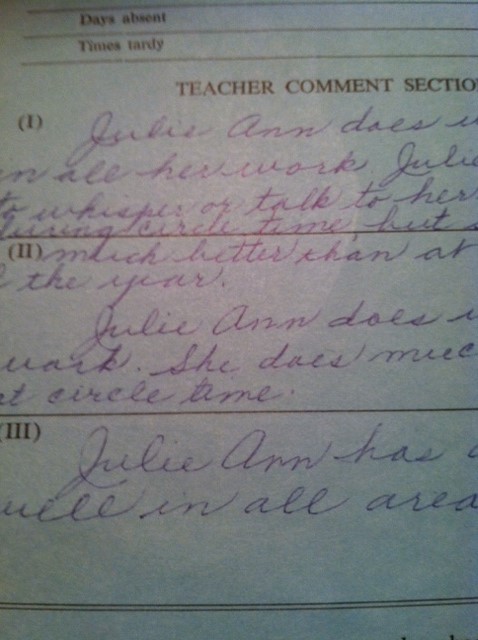 Days absent
Times tardy
TEACHER COMMENT SECTIO
(I) Julie Ann does w
in all her work. Julie
to whisper or talk to her
during circle time, but s
(II) much better than at
the year.
Julie Ann does w
work. She does muc
at circle time.
(III)
Julie Ann has d
well in all area